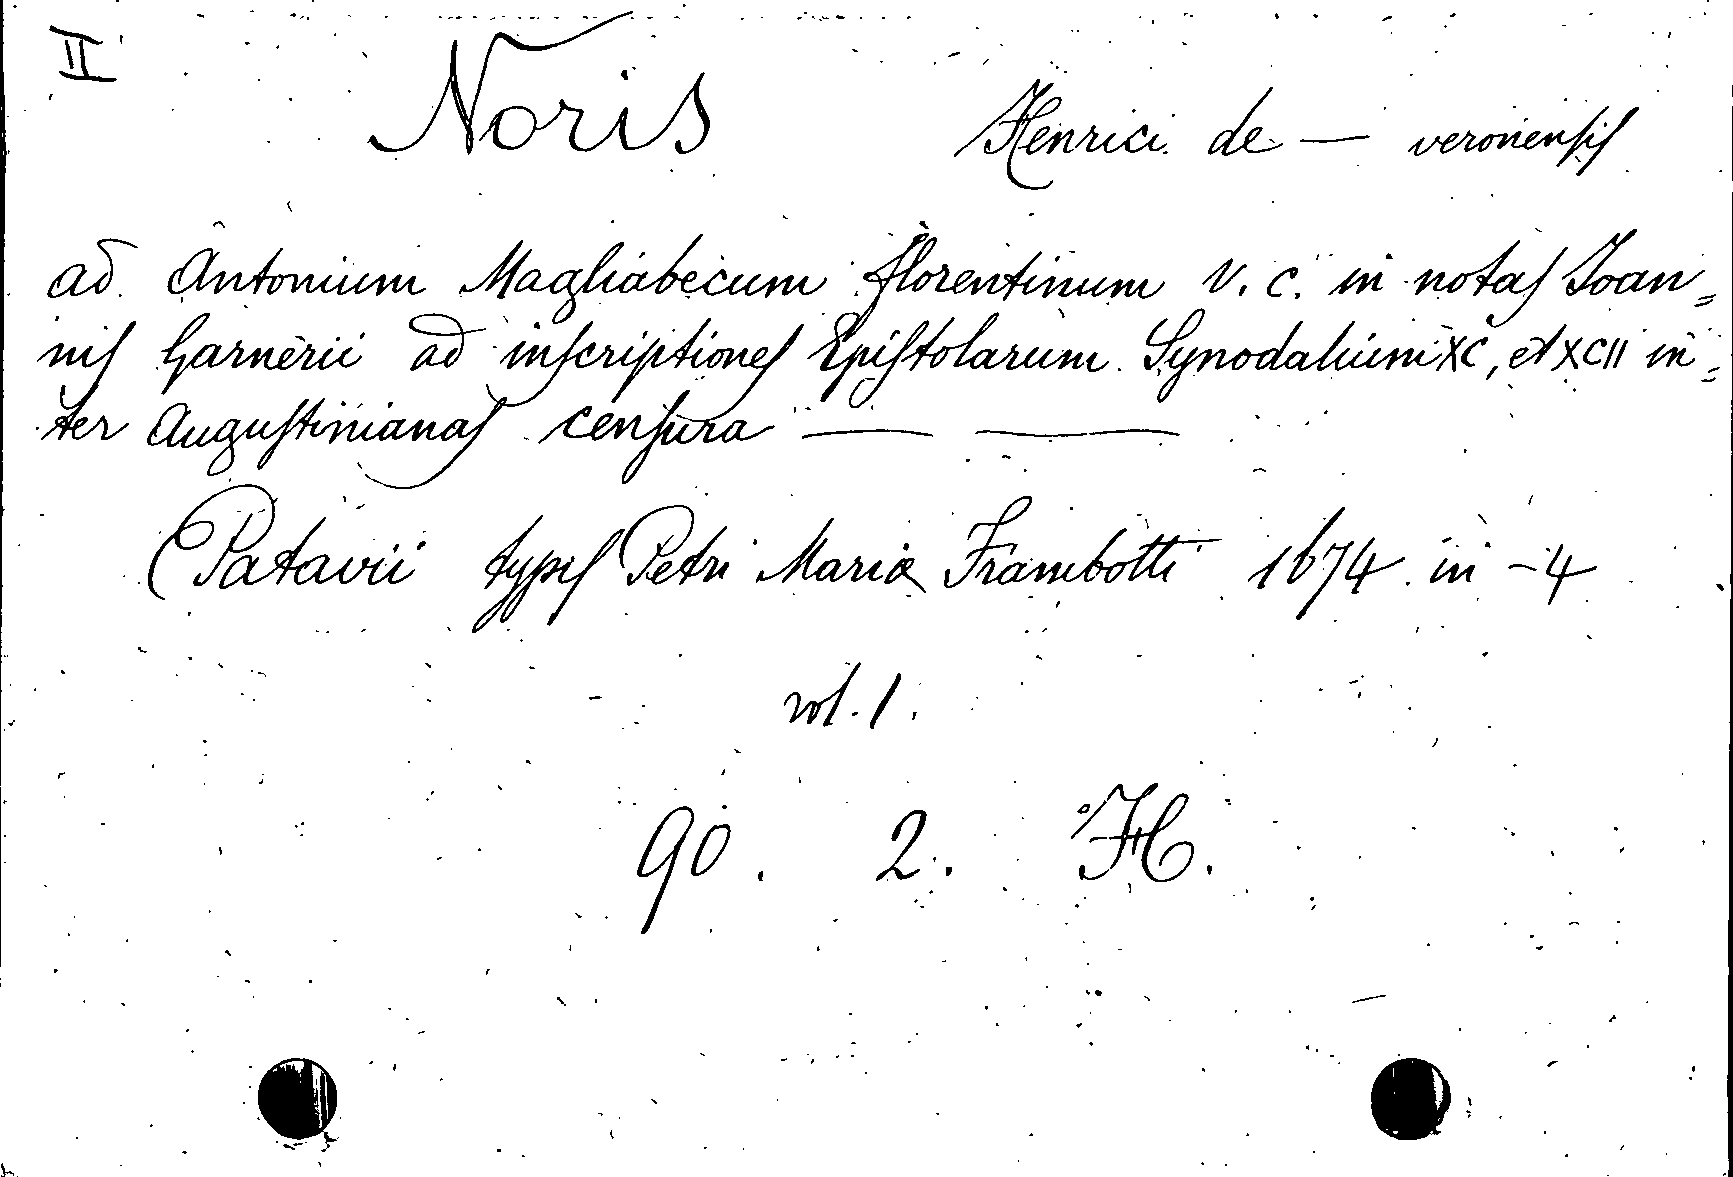 II
Noris Henrici de — veronensis
ad Antonium Magliabecum florentinum V. C. in notas Joan=
nis Garnerii ad inscriptiones Epistolarum Synodalium XC, et XCII in=
ter Augustinianas censura — —
Patavii typis Petri Mariæ Frambotti 1674 in -4
vol. 1.
90. 2. H.